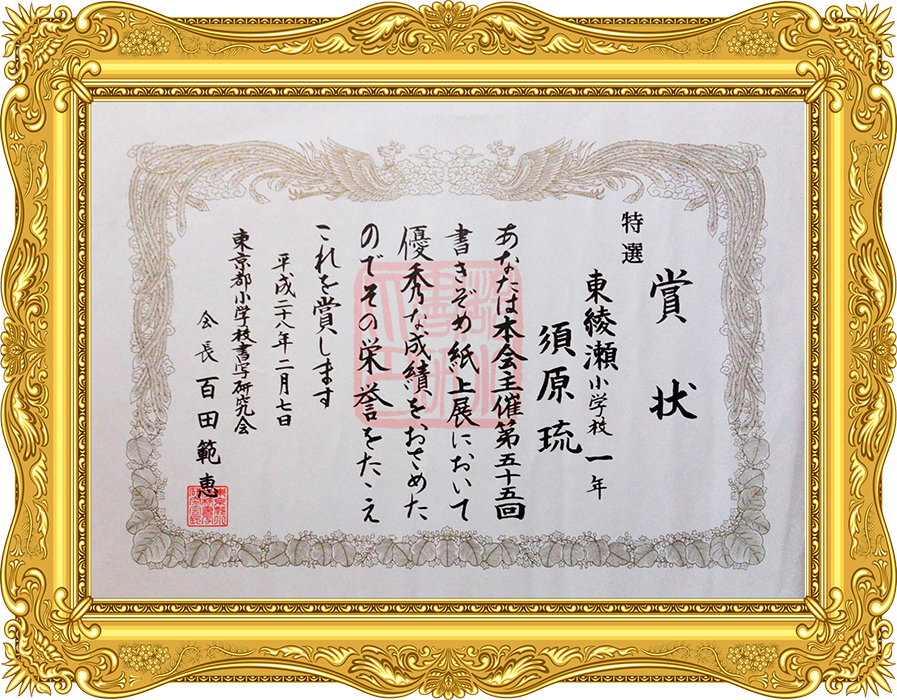 賞状
特選
東綾瀬小学校一年
須原琉
あなたは本会主催第五十五回
書きぞめ紙上展において
優秀な成績をおさめた
のでその栄誉をたゝえ
これを賞します
平成二十八年二月七日
東京都小学校書写研究会
会長 百田範恵